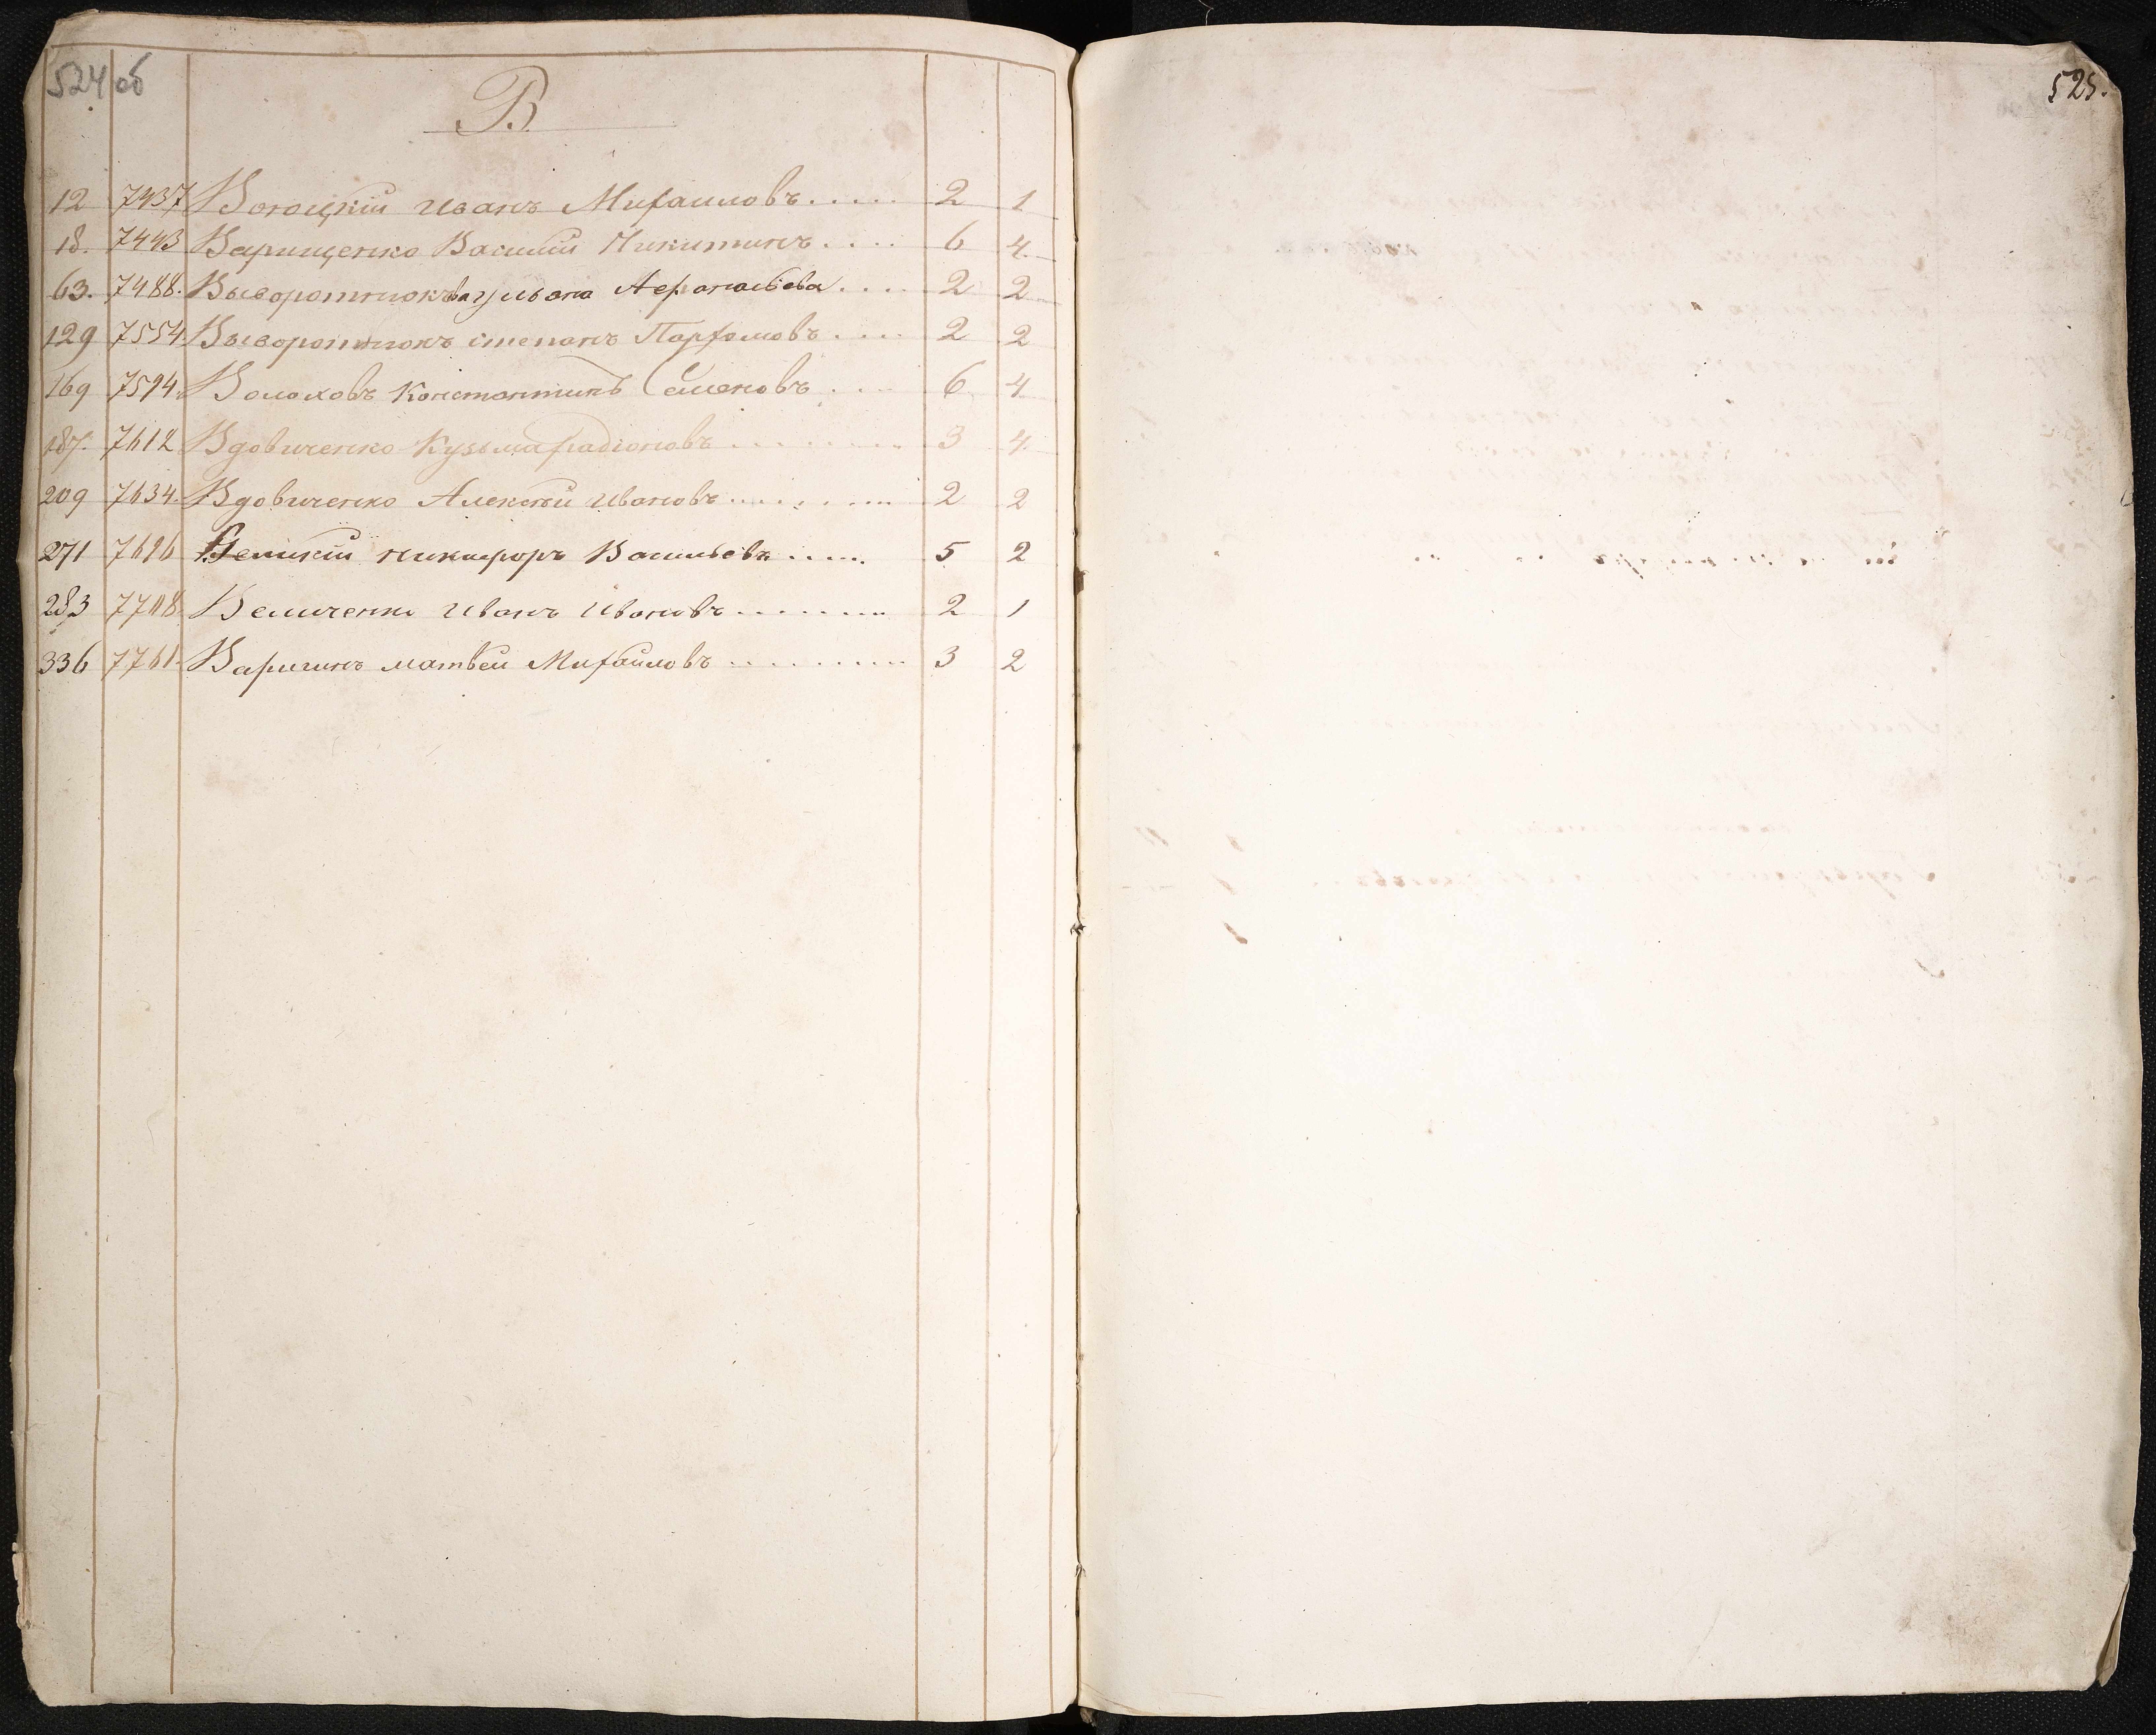 524 об
В
12 7437 Вотоцкій Иванъ Михаиловъ..... 2 1
18. 7443 Верищенко Василій Никитинъ.... 6 4.
63. 7488. Выворотнюкъва ульяна Афонасьева.... 2 2
129 7554. Выворотнюкъ степанъ Парфомовъ.... 2 2
169 7594. Волоховъ Константинъ Семеновъ.... 6 4
187. 7612 Вдовиченко Кузьма радіоновъ......... 3 4.
209 7634. Вдовиченко Алексѣй Ивановъ......... 2 2
271 7696 Великій никифоръ Васильевъ..... 5 2
283 7708 Величенко Иванъ Ивановъ........ 2 1
336 7761. Варигинъ матвей Михаиловъ......... 3 2
525.